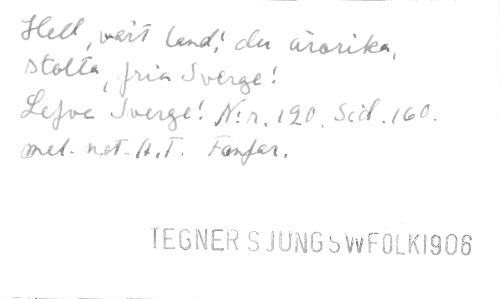 Hell, vårt land! du ärorika,
stolta, fria Sverge!
Lefve Sverge! N:r. 120. Sid. 160.
mel. not. A.T. Fanfar.
TEGNER SJUNG SWFOLK1906